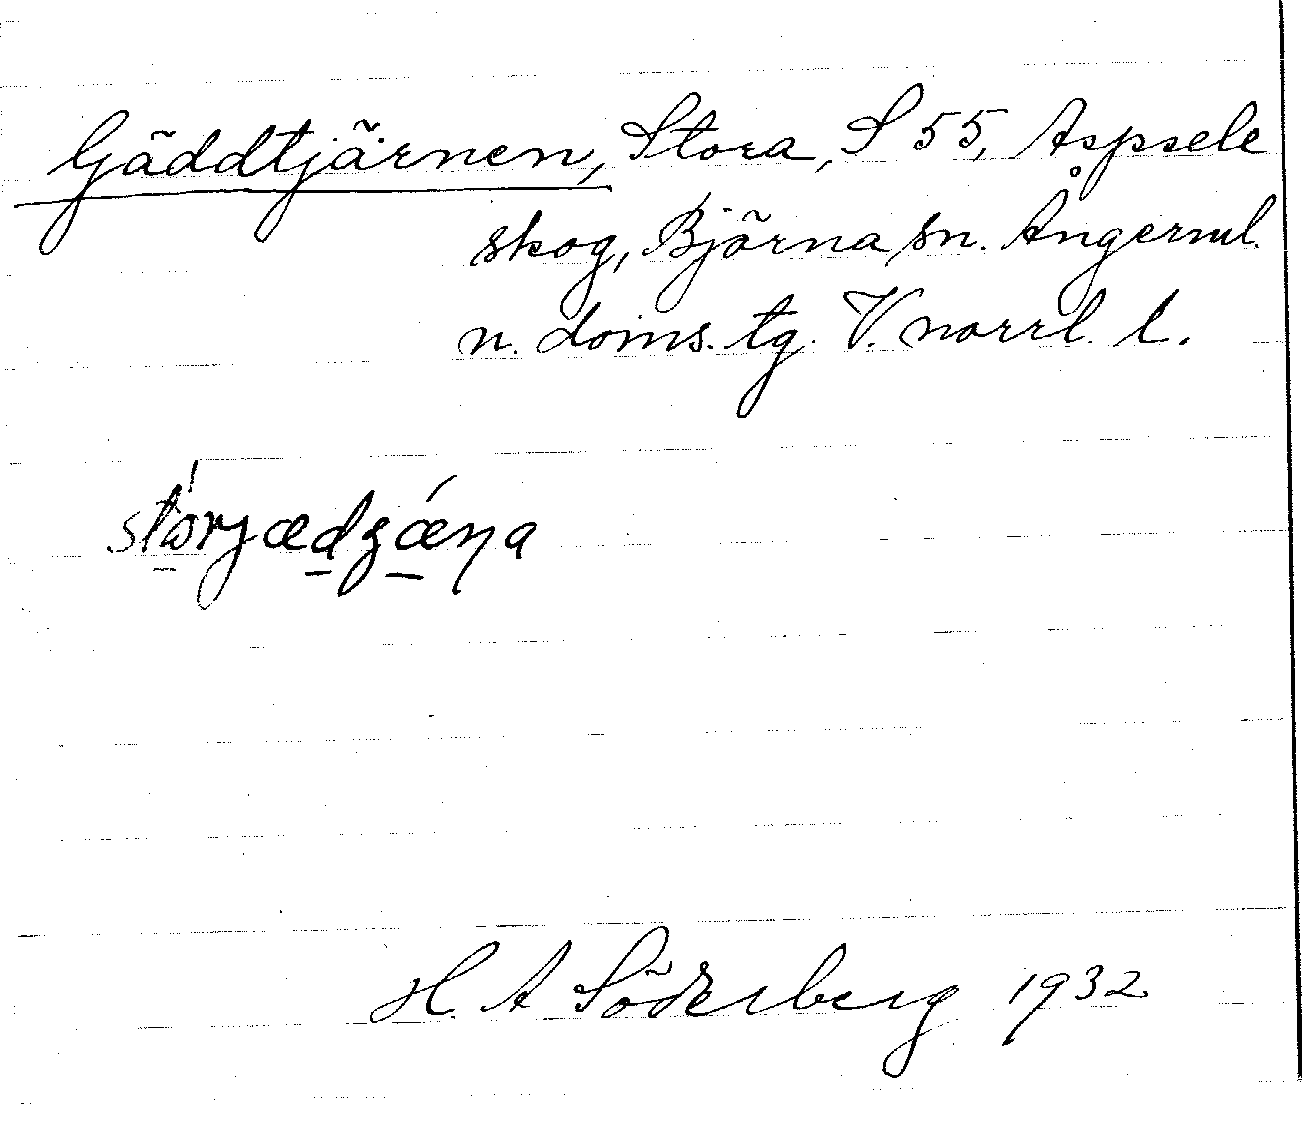 Gäddtjärnen, Stora, S 55, Aspsele
skog, Björna sn. Ångerml.
n. doms. tg. V. norrl. l.
stórjædʒǽṇa
H. A Söderberg 1932